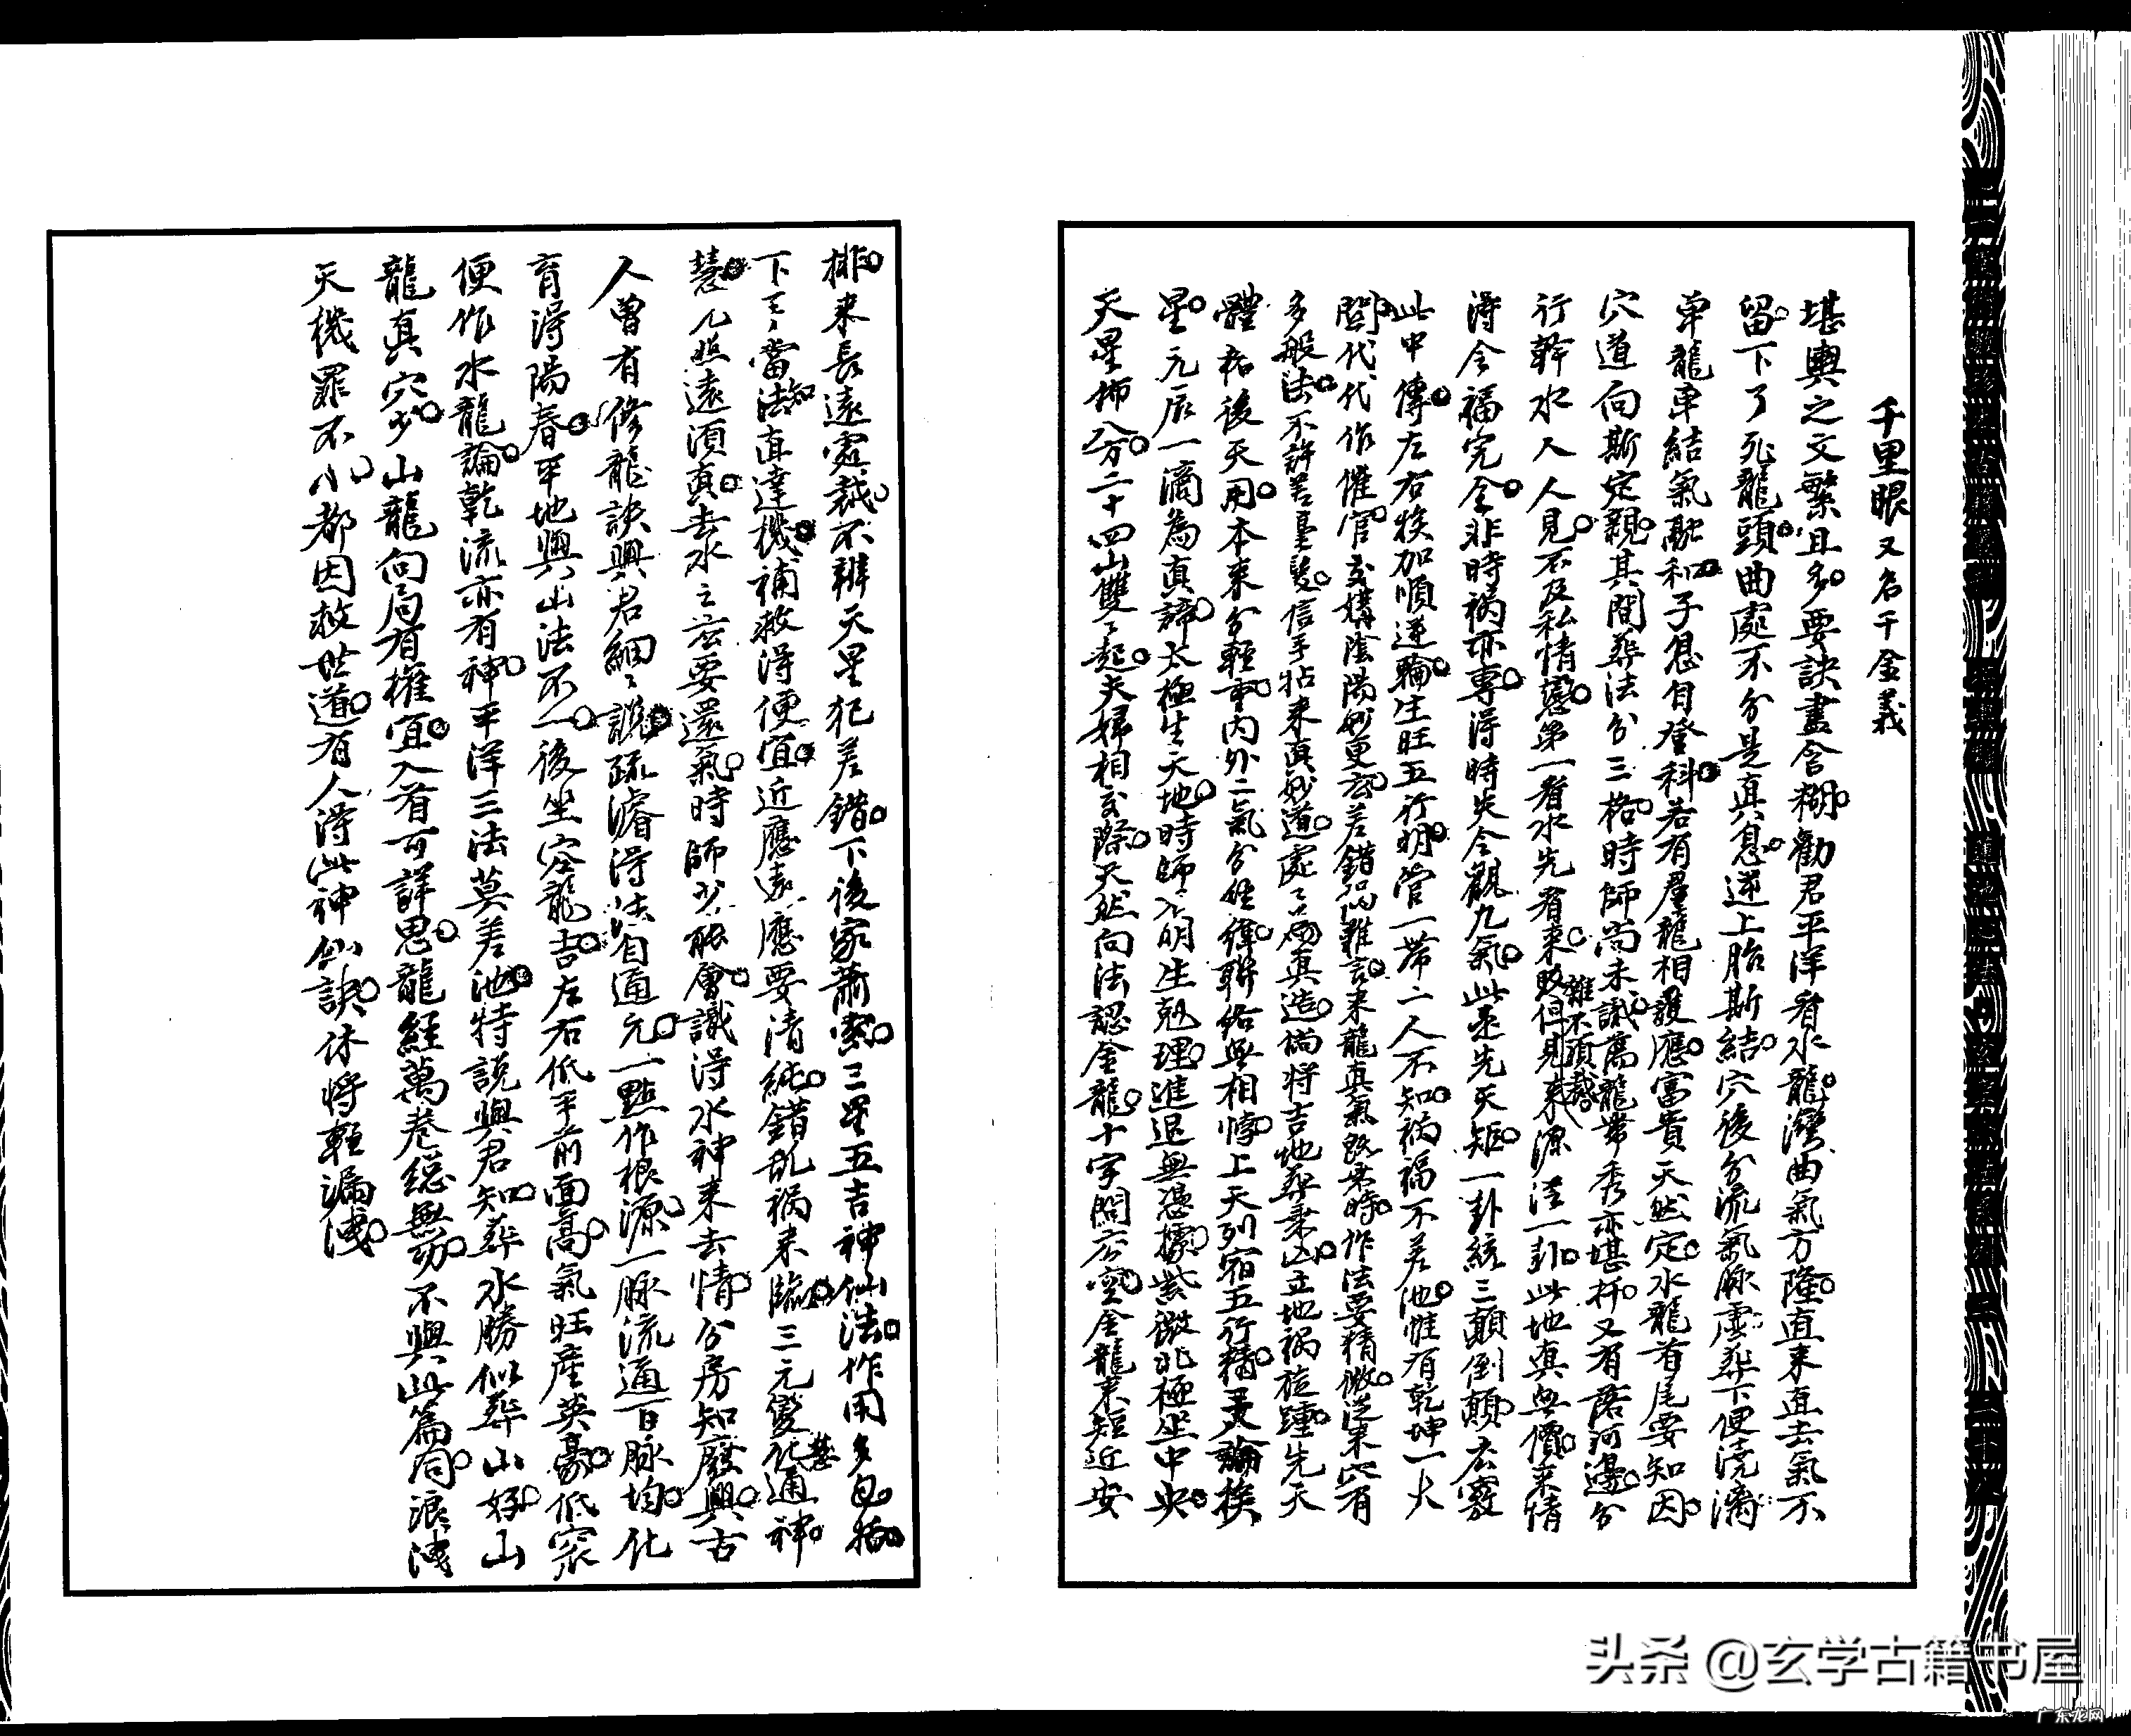 千里眼又名千金義
堪輿之文繁且多要訣盡含糊勸君平洋看水龍灣曲氣方隆直来直去氣不
留下了死龍頭曲處不分是真息逆上胎斯結穴後分流氣脉虛葬下便澆漓
単龍単結氣融和子息自登科若有羣龍相護應富貴天然定水龍首尾要知因
穴道向斯定親其間葬法分三格時師尚未識高龍帶秀亦堪扦又有落河邊分
行幹水人人見不及私情戀第一看水先看来
雜不須裁
但見来源後一卦此地真無價来情
得令福完全非時禍亦專得時失令觀九氣此是先天矩一卦統三顛倒顛玄竅
此中傳左右挨加順逆輪生旺五行明管一帶二人不知禍福不差池惟有乾坤一大
間代代作催官交媾陰陽妙更玄差錯難言来龍真氣既若時作法要精微逆来穴有
多般法不許差毫髮信手拈来真妙道處々為真造倘将吉地葬来凶立地禍旋踵先天
體格後天用本来分輕重内外二氣分經緯聯絡無相悖上天列宿五行精論挨
星元辰一滴為真諦太極生天地時師不明生尅理進退無憑據紫微北極坐中央
天星佈八分二十四山雙々起夫婦相交際天然向法認金龍十字問玄空金龍来短近安
排来長遠處裁不辨天星犯差錯下後家蕭索三星五吉神仙法作用多包括
下了當知法直達機補救得便宜近應遠應要清純錯乱禍来臨三元變化通神
慧凡照遠須真去水之玄要還氣時師少能會識得水神来去情公房知廢興古
人曾有修龍訣與君細々說疏濬得法自通元一點作根源一脉流通百脉均化
育得陽春平地與山法不一後坐空龍吉左右低平前面高氣旺産英豪低窊
便作水龍論乾流亦有神平洋三法莫差池特説與君知葬水勝似葬山好山
龍真穴少山龍向局有權宜入首可詳思龍經萬卷總無功不與此篇同浪洩
天機罪不小都因救世道有人得此神仙訣休将輕漏洩
头条 @玄学古籍书屋
广东龙网